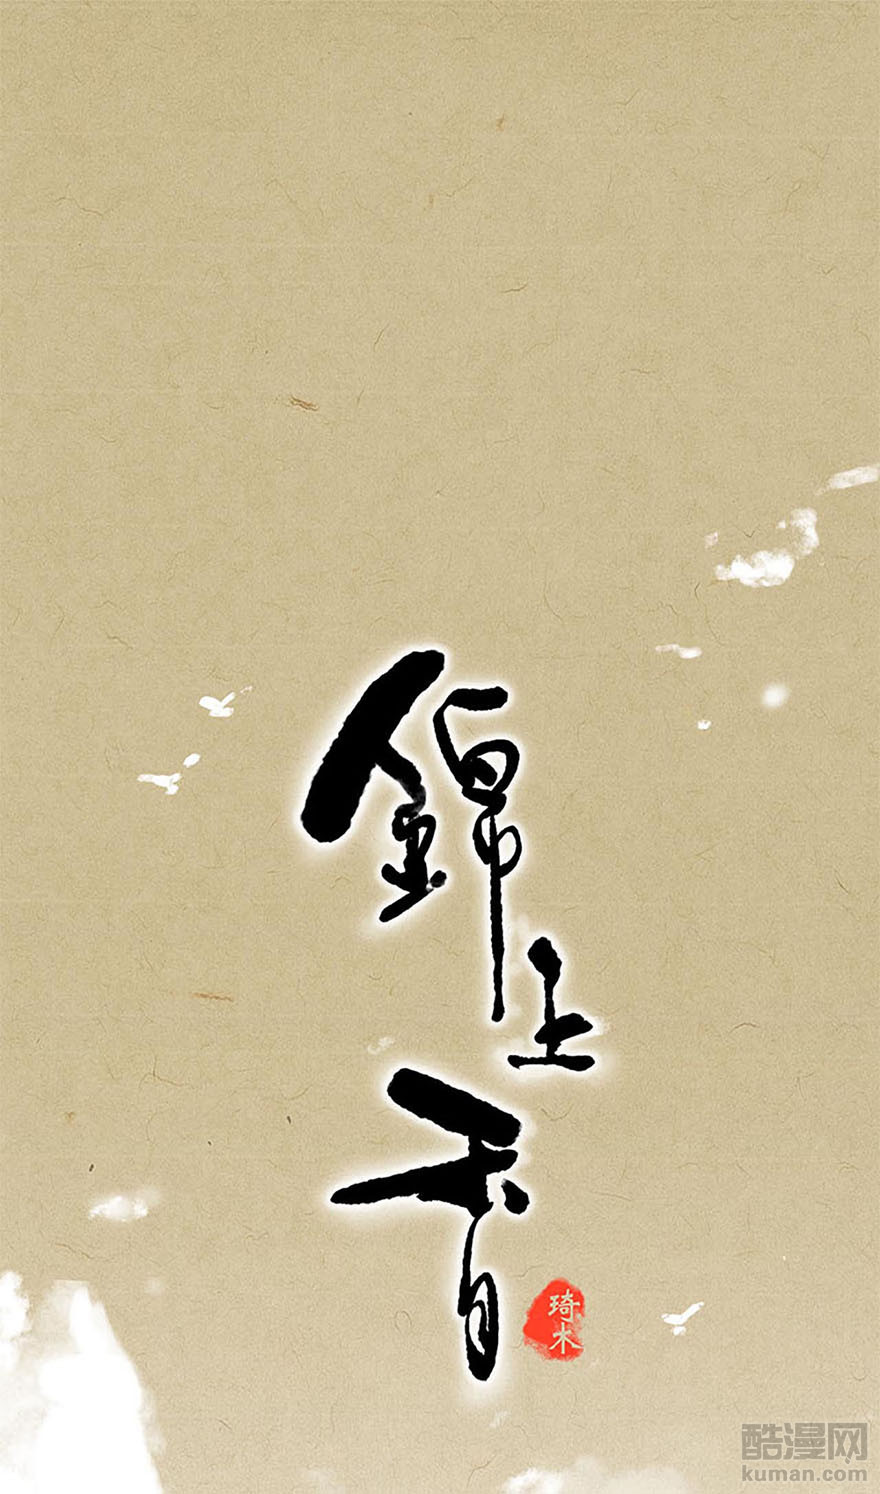 錦上香
琦木
酷漫网
kuman.com